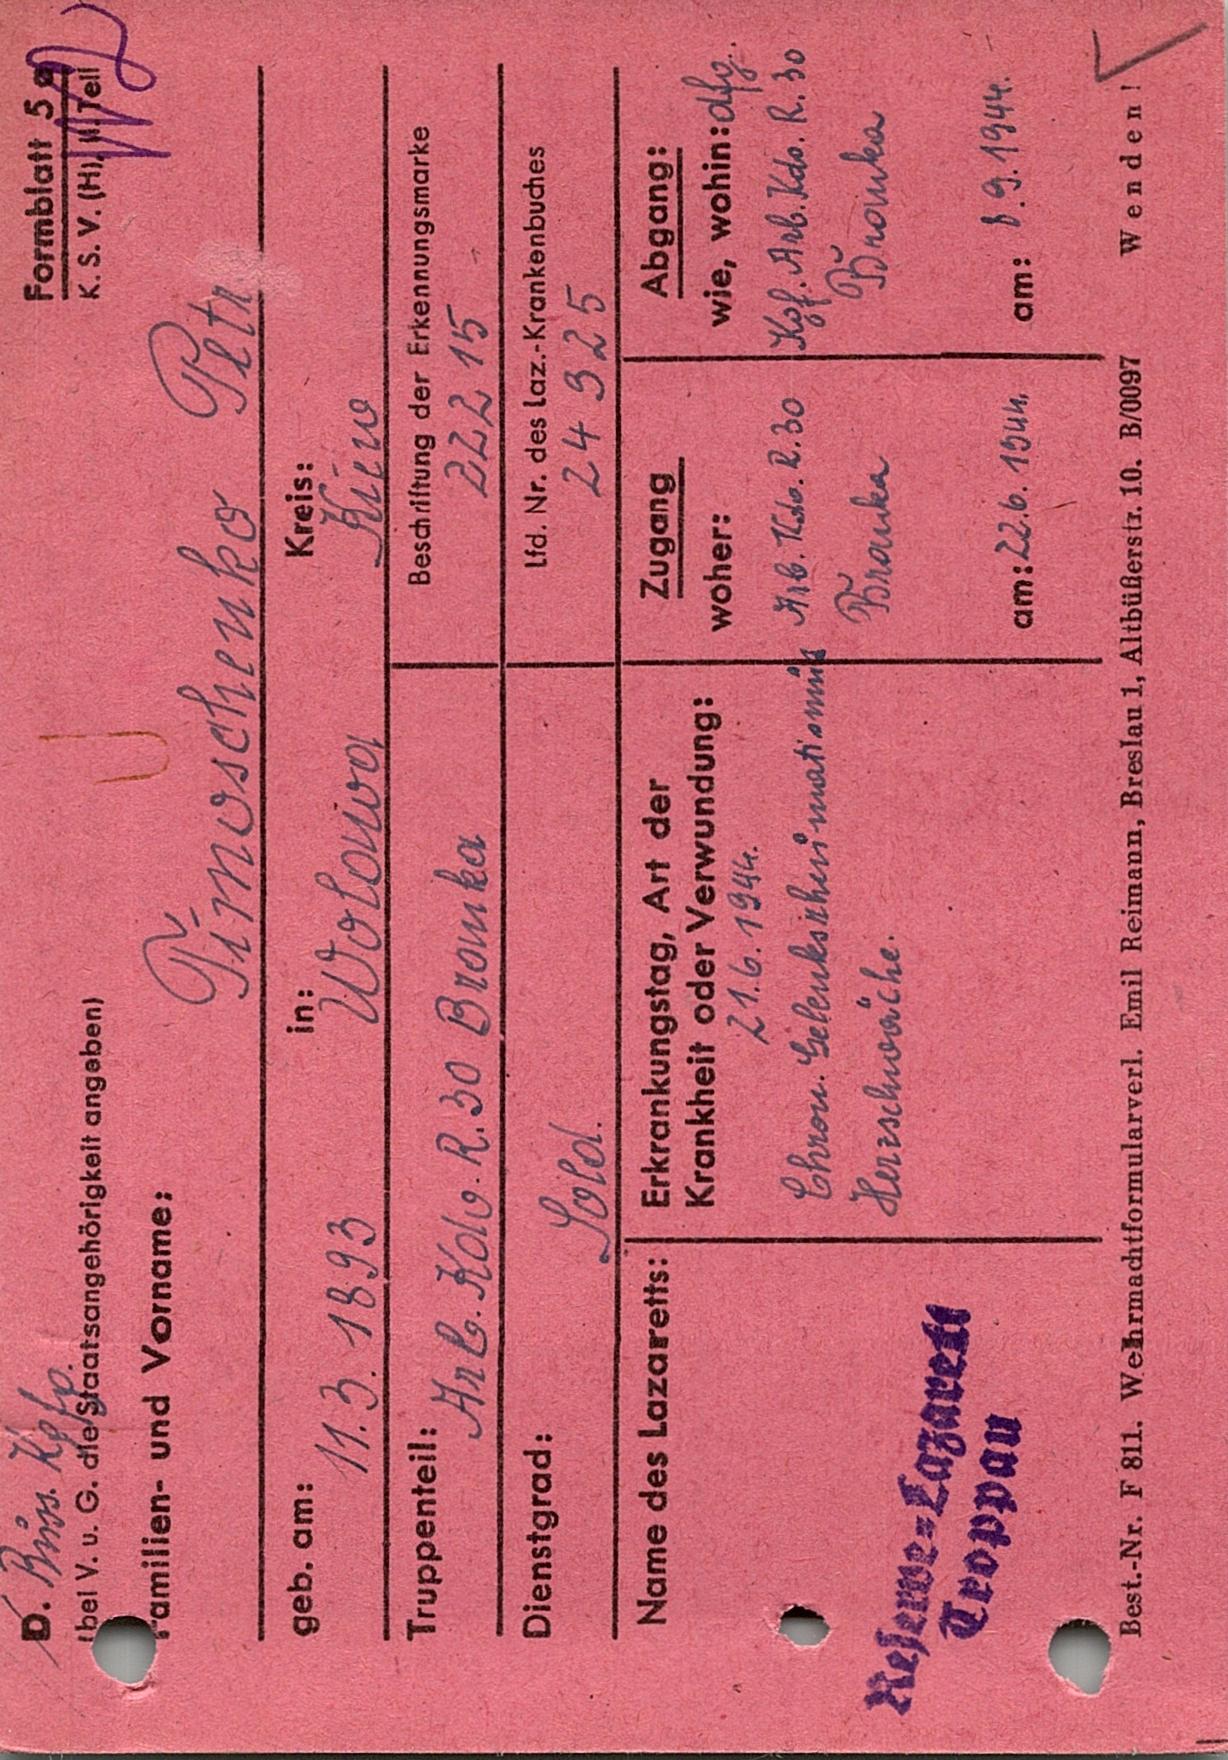 D. Russ. Kgfg.
Formblatt 5 a
(bei V. u. G. die Staatsangehörigkeit angeben)
K. S. V. (H), II. Teil
Familien- und Vorname:
Timoschenko Petr
geb. am: in: Kreis:
11.3.1893 Wolowa Kiew
Truppenteil: Arb. Kdo. R. 30 Branka
Beschriftung der Erkennungsmarke
22215
Dienstgrad: Sold.
Lfd. Nr. des Laz.-Krankenbuches
24 925
Name des Lazaretts:
Reserve-Lazarett
Troppau
Erkrankungstag, Art der
Krankheit oder Verwundung:
21.6.1944.
Chron. Gelenksrheumatismus
Herzschwäche.
Zugang
woher:
Arb. Kdo. R. 30
Branka
am: 22.6.1944.
Abgang:
wie, wohin: dfg.
Kgf. Arb. Kdo. R. 30
Branka
am: 8.9.1944.
Best.-Nr. F 811. Wehrmachtformularverl. Emil Reimann, Breslau 1, Altbüßerstr. 10. B/0097 Wenden!